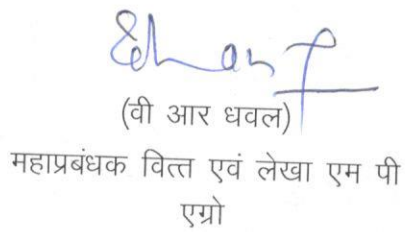 (वी आर धवल)
महाप्रबंधक वित्त एवं लेखा एम पी
एग्रो